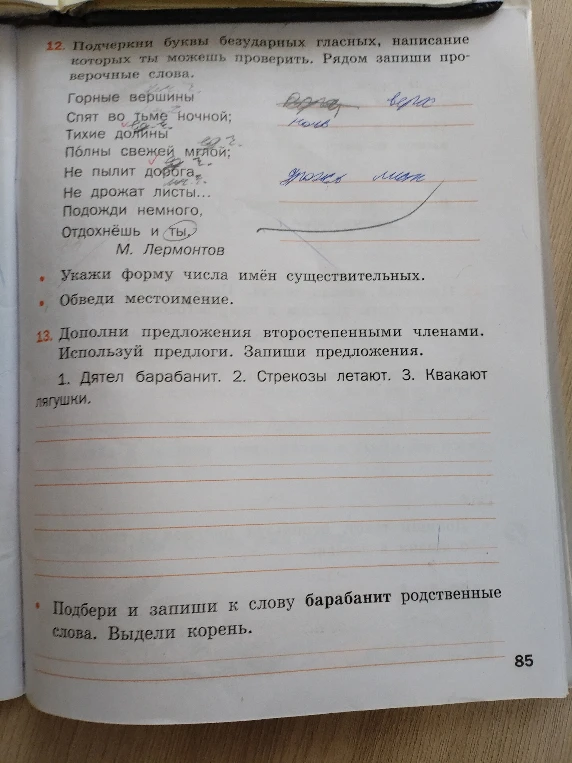 12. Подчеркни буквы безударных гласных, написание
которых ты можешь проверить. Рядом запиши про-
верочные слова.
Горные вершины верх
Спят во тьме ночной; ночь
Тихие долины
По́лны свежей мглой;
Не пылит дорога,
Не дрожат листы... дрожь лист
Подожди немного,
Отдохнёшь и ты.
М. Лермонтов
• Укажи форму числа имён существительных.
• Обведи местоимение.
13. Дополни предложения второстепенными членами.
Используй предлоги. Запиши предложения.
1. Дятел барабанит. 2. Стрекозы летают. 3. Квакают
лягушки.
• Подбери и запиши к слову барабанит родственные
слова. Выдели корень.
85